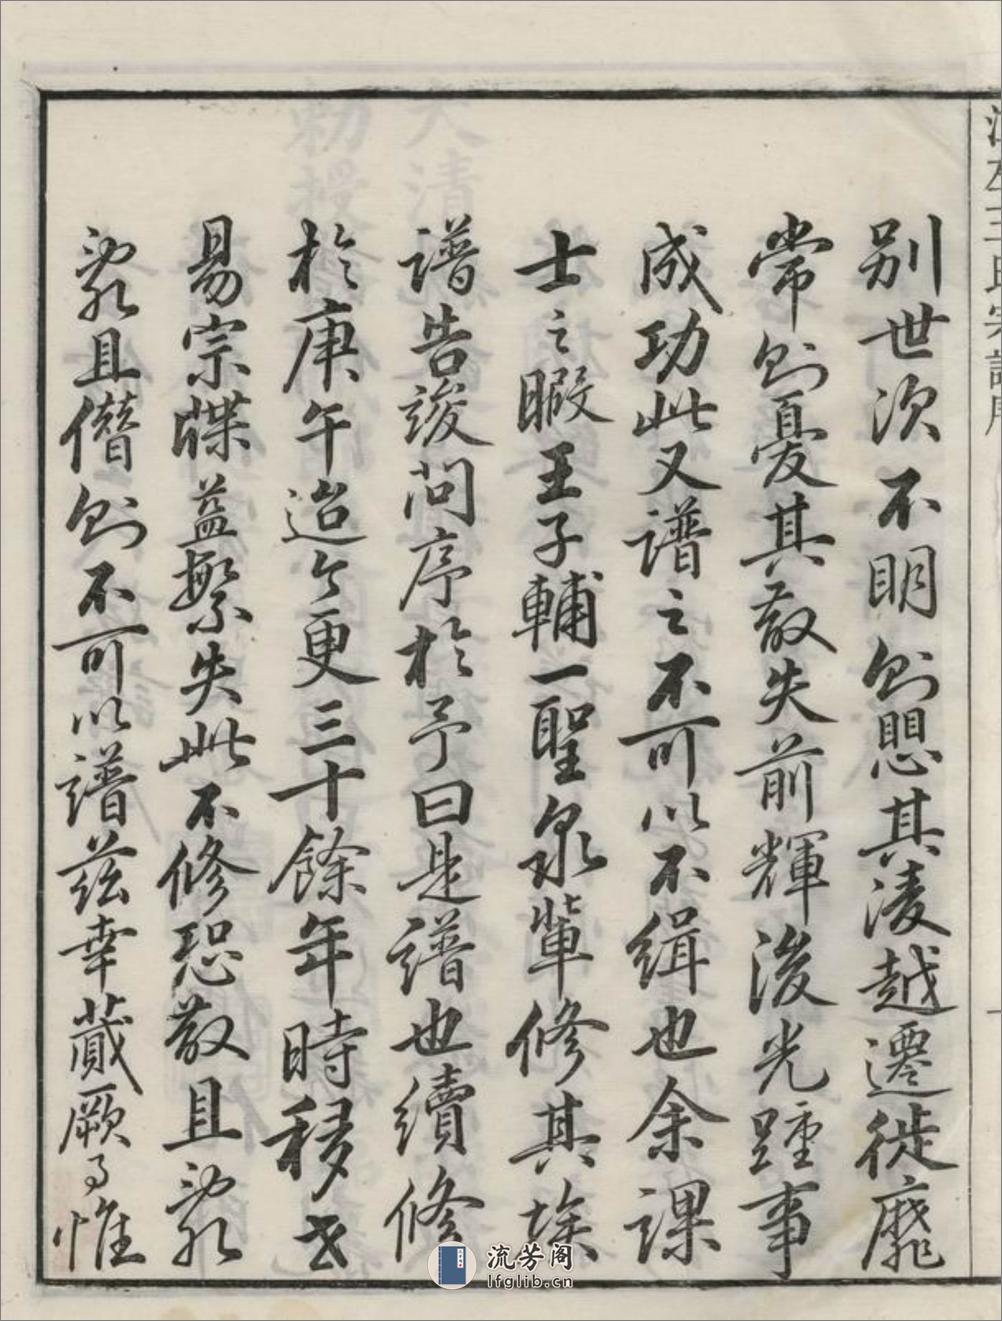 別世次不明則愳其凌越遷徙靡
常則憂其散失前輝後光踵事
成功此又譜之不可以不緝也余課
士之暇王子輔一聖泉輩修其族
譜告竣問序於予曰是譜也續修
於庚午迨今更三十餘年時移世
易宗牒益繁失此不修恐散且亂
亂且僭則不可以譜茲幸蕆厥事惟
王氏宗譜序
流芳阁
lfglib.cn